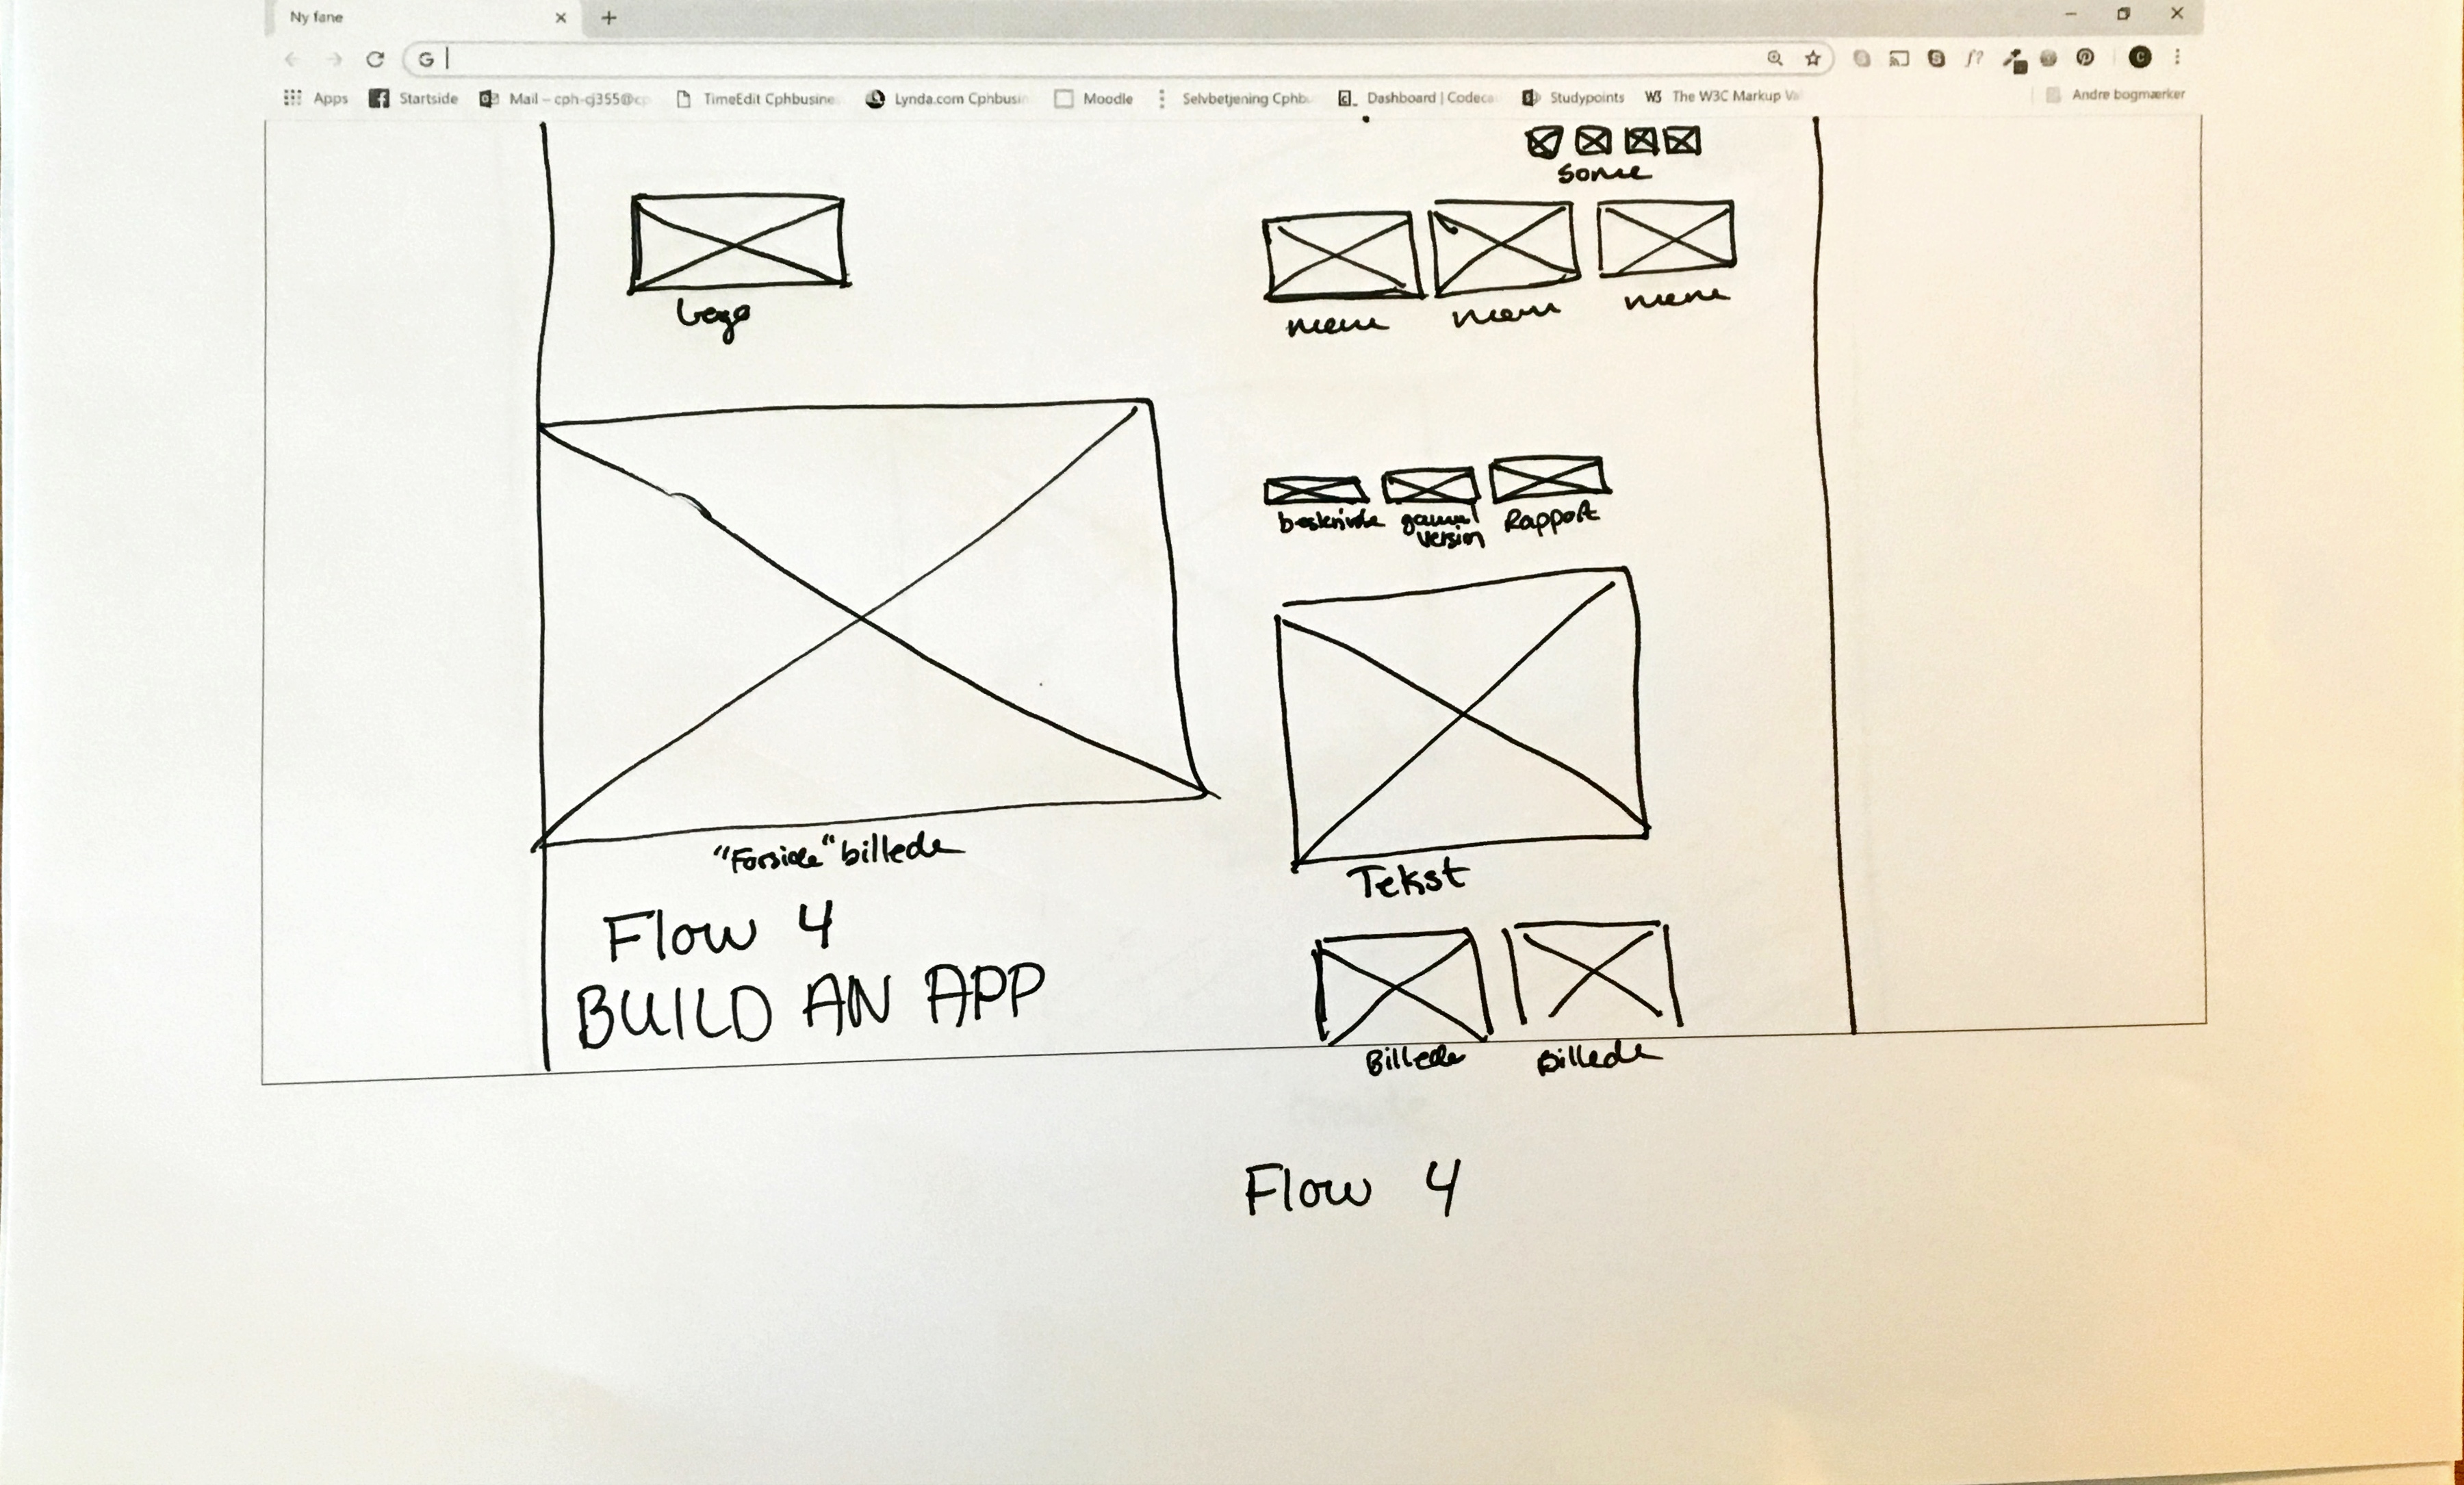 Ny fane
G
Apps Startside Mail – cph-cj355@cp TimeEdit Cphbusine Lynda.com Cphbusin Moodle Selvbetjening Cphb Dashboard | Codeca Studypoints W3 The W3C Markup Va Andre bogmærker
some
Logo
menu menu menu
beskrivelse gammel version Rapport
"Forside" billede
Tekst
Flow 4
BUILD AN APP
Billede Billede
Flow 4